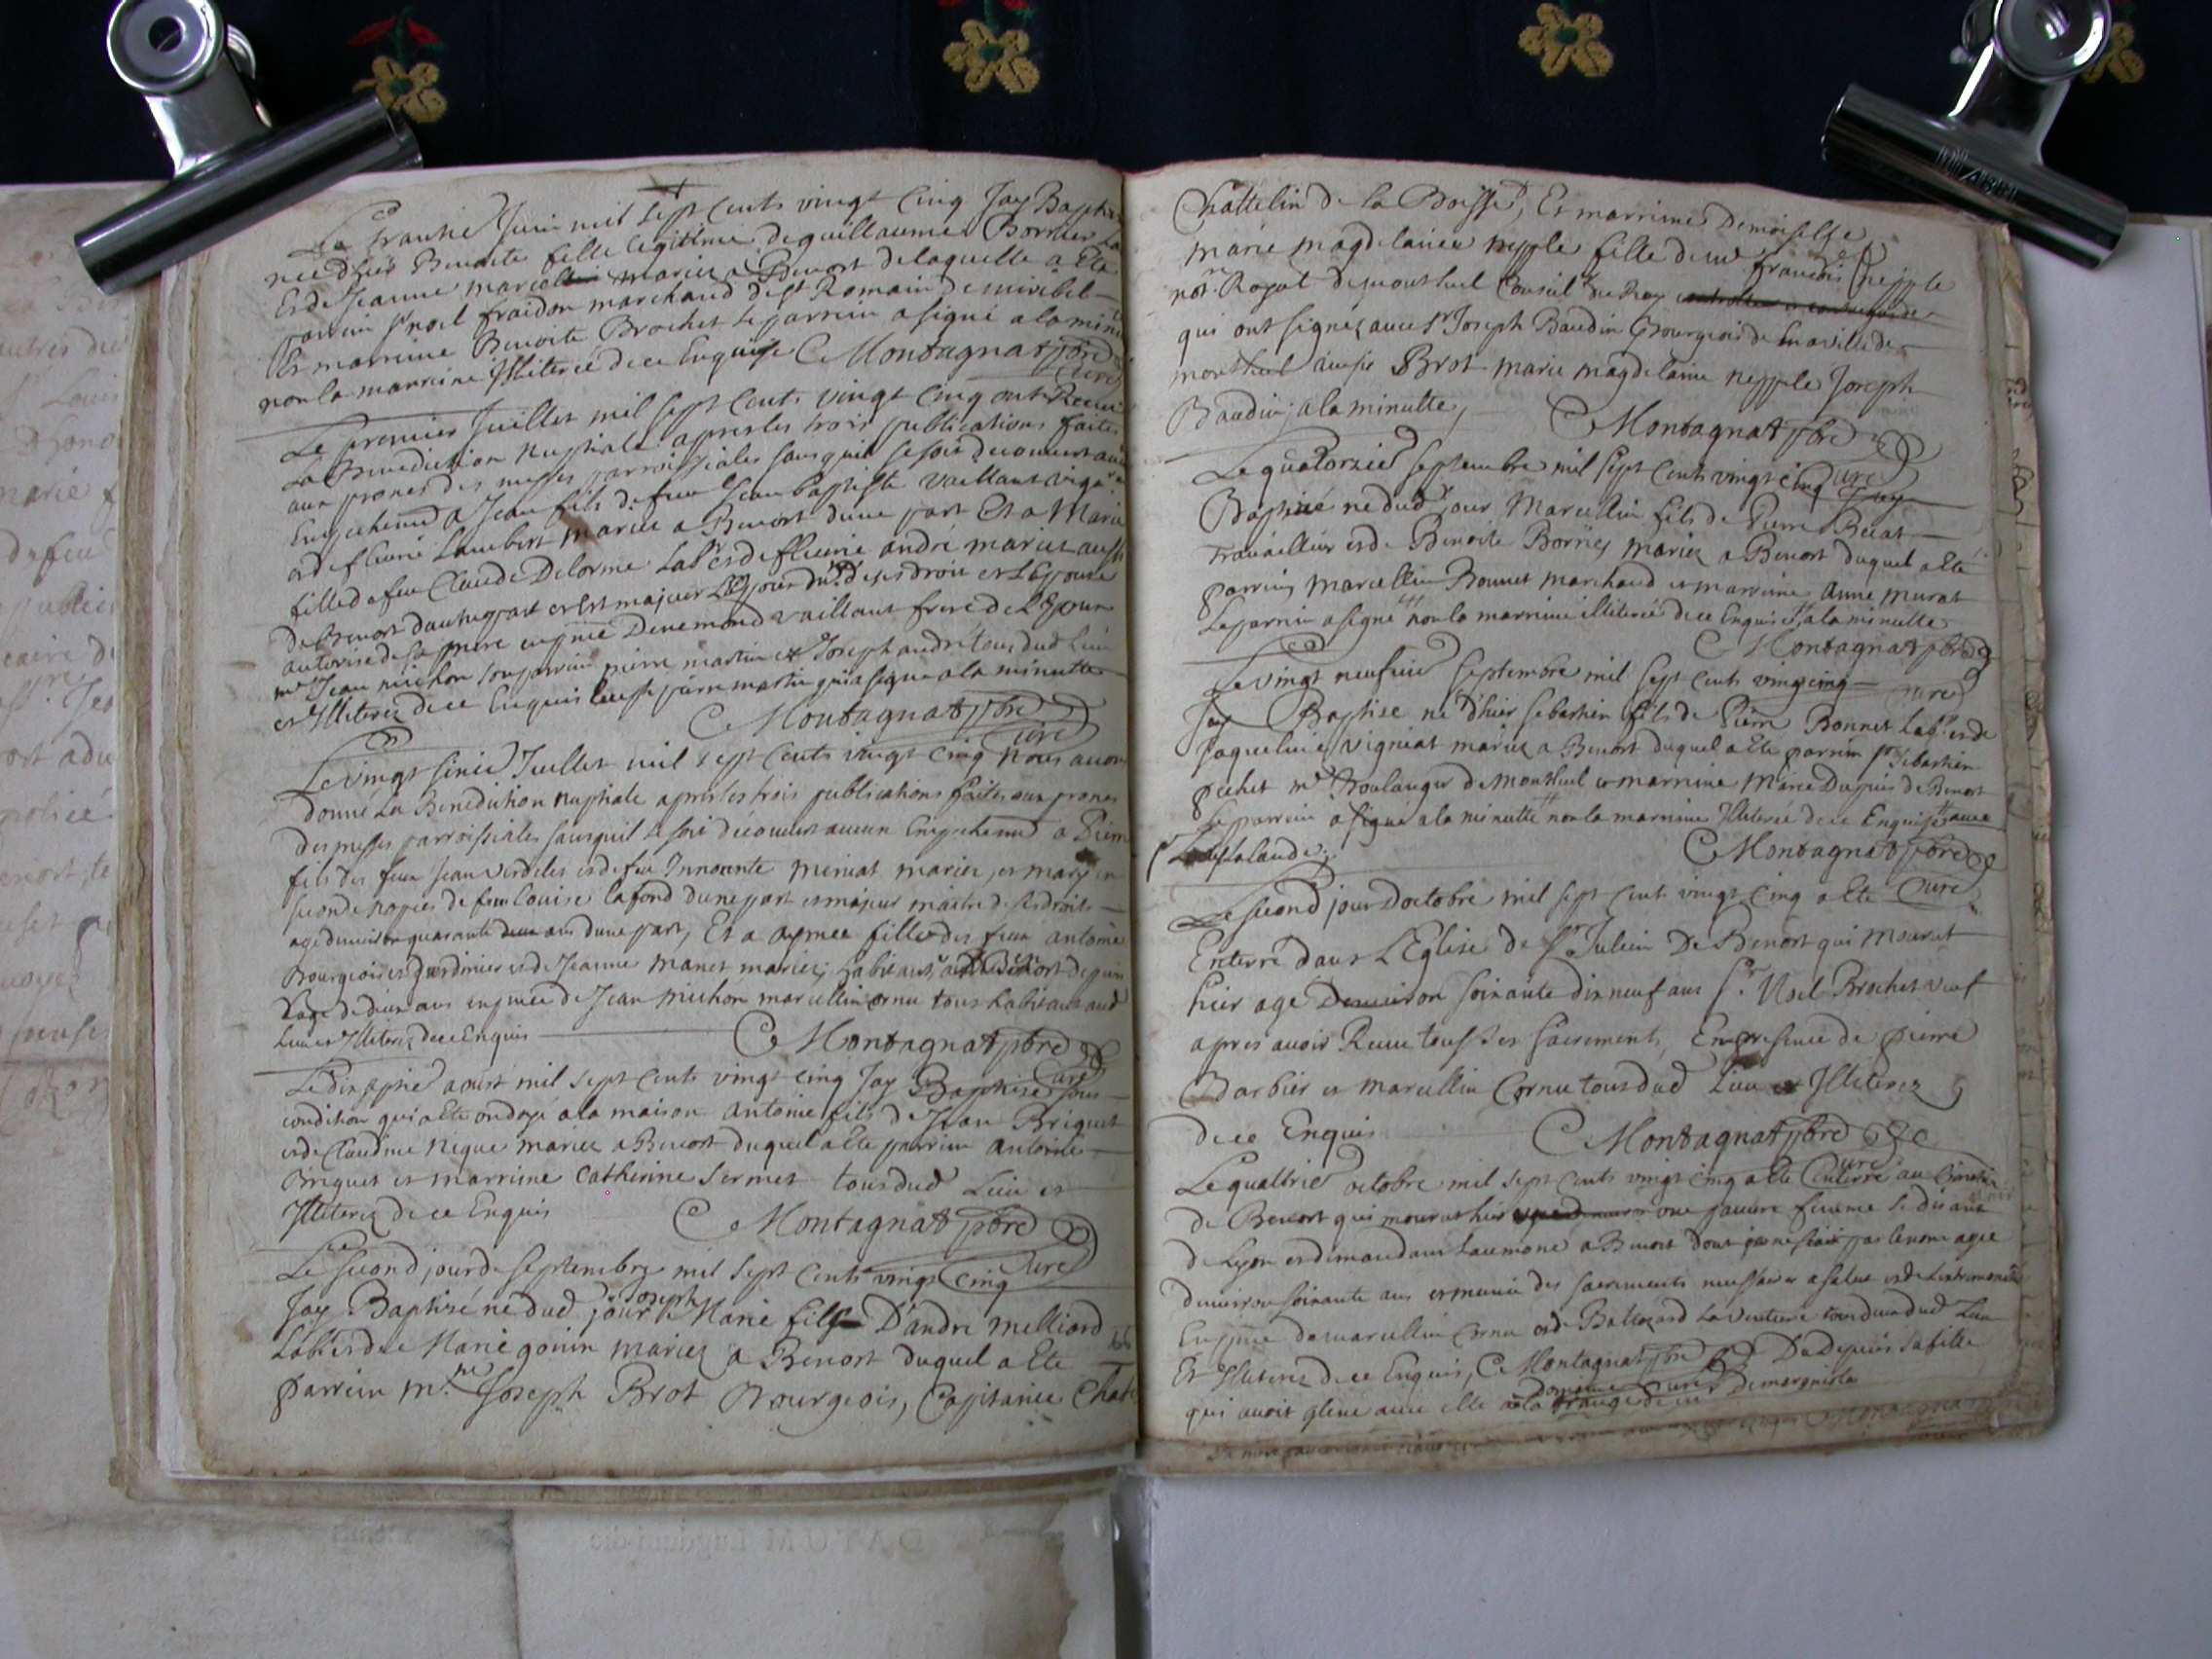 Le trantie Juin mil sept cents vingt cinq Jay Baptisé
née d'hier Benoite fille legitime de guillaume Borrier
Et de Jeanne mariez a Benost delaquelle a Eté
parrein Sr noel fraidon marchand de St Romain de miribel
Et marrine Benoite Brochet le parrein a signé a la
non la marrine Illiterée de ce Enquise C Montagnat pbre
Curé
Le premier Juillet mil sept cents vingt cinq ont Receu
La Benediction Nuptiale apres les trois publications faites
aux prones des messes parroissiales sans quil se soit decouvert
Empechemt a Jean fils de feu Jean baptiste vaillant
et de fleurie Lambert mariez a Benost dune part Et a Marie
fille de feu Claude Delorme Labr et de fleurie andré mariez aussi
de Benost dautre part et Est majeur L'Epoux de ses droits et L'Epouse
autorisé de sa mere en pnce Denemond vaillant frere de L'Epoux
Jean michon son parrein pierre martin et Joseph andré tous dud lieu
et Illiterez de ce Enquis sauf pierre martin qui a signe a la minutte
C Montagnat pbre
Curé
Le vingt Juillet mil sept cents vingt cinq Nous avons
donné La Benediction nuptiale apres les trois publications faites aux prones
des messes parroissiales sans quil se soit découvert aucun Empechemt a Pierre
fils des feux Jean verdelet et de feu Innocente meniat mariez, et
seconde nopces de feue Louise lafond dune part et majeur maitre de ses droits
agé denviron quarante deux ans dune part, Et a aymée fille des feux antoine
Bourgeois et de Jeanne manet mariez; habitants a Benost depuis
L'age de deux ans en pnce de Jean michon marcellin Cornu tous habitants aud
Lieu et Illiterez de ce Enquis C Montagnat pbre
Curé
Le dix aoust mil sept cents vingt cinq Jay Baptisé sous
condition qui a Eté ondoyé a la maison antoine fils de Jean Briquet
et de Claudine Neque mariez a Benost duquel a Eté parrein antoine
Briquet et marrine Catherine Sermet tous dud Lieu et
Illiterez de ce Enquis C Montagnat pbre
Curé
Le second jour de septembre mil sept cents vingt cinq
Jay Baptisé né dud jour Joseph Marie fils D'andré milliard
Labr et de Marie gonin mariez a Benost duquel a Eté
parrein Mre Joseph Brot Bourgeois, Capitaine
Chattelin de la Boisse, Et marrine Demoiselle
marie magdelaine nepple fille de mr françois nepple
notr Royal de montluel Conseilr du Roy
qui ont signez avec Sr Joseph Baudin Bourgeois de la ville de
montluel aussi Brot marie magdelaine nepple Joseph
Baudin; a la minutte, C Montagnat pbre
Curé
Le quatorzie septembre mil sept cents vingt cinq Jay
Baptisé né dud jour Marcellin fils de Pierre Berat
travailleur et de Benoite Borriez mariez a Benost duquel a Eté
parrein Marcellin Bonnet marchand et marrine anne murat
Le parrein a signé non la marrine illiterée de ce Enquise a la minutte
C Montagnat pbre
Curé
Le vingt neufvie septembre mil sept cents vingt cinq
Jay Baptise né d'hier sebastien fils de Pierre Bonnet Labr et de
Jaqueline vigniat mariez a Benost duquel a Eté parrein Sr Sebastien
pechet me Boulanger de Montluel et marrine Marie Dupuis de Benost
Le parrein a signé a la minutte non la marrine Illiterée de ce Enquise avec
C Montagnat pbre
Curé
Le second jour Doctobre mil sept cents vingt cinq a Eté
Enterré dans L'Eglise de St Julien De Benost qui mourut
hier agé Denviron soixante dix neuf ans Sr Noel Brochet veuf
apres avoir Receu tous ses sacrements, En presence de pierre
Barbier et marcellin Cornu tous dud Lieu et Illiterez
de ce Enquis C Montagnat pbre
Curé
Le quattrie octobre mil sept cents vingt cinq a Eté Enterré au Cimetiere
de Benost qui mourut hier une pauvre femme se disant
de Lyon et demandant Laumone a Benost dont je ne sçais pas le nom agée
denviron soixante ans et munie des sacrements necessaires a salut et de
En pnce de marcellin Cornu et de Baltezard tous deux dud Lieu
Et Illiterez de ce Enquis, C Montagnat pbre Curé
qui avoit glené avec elle a la grange